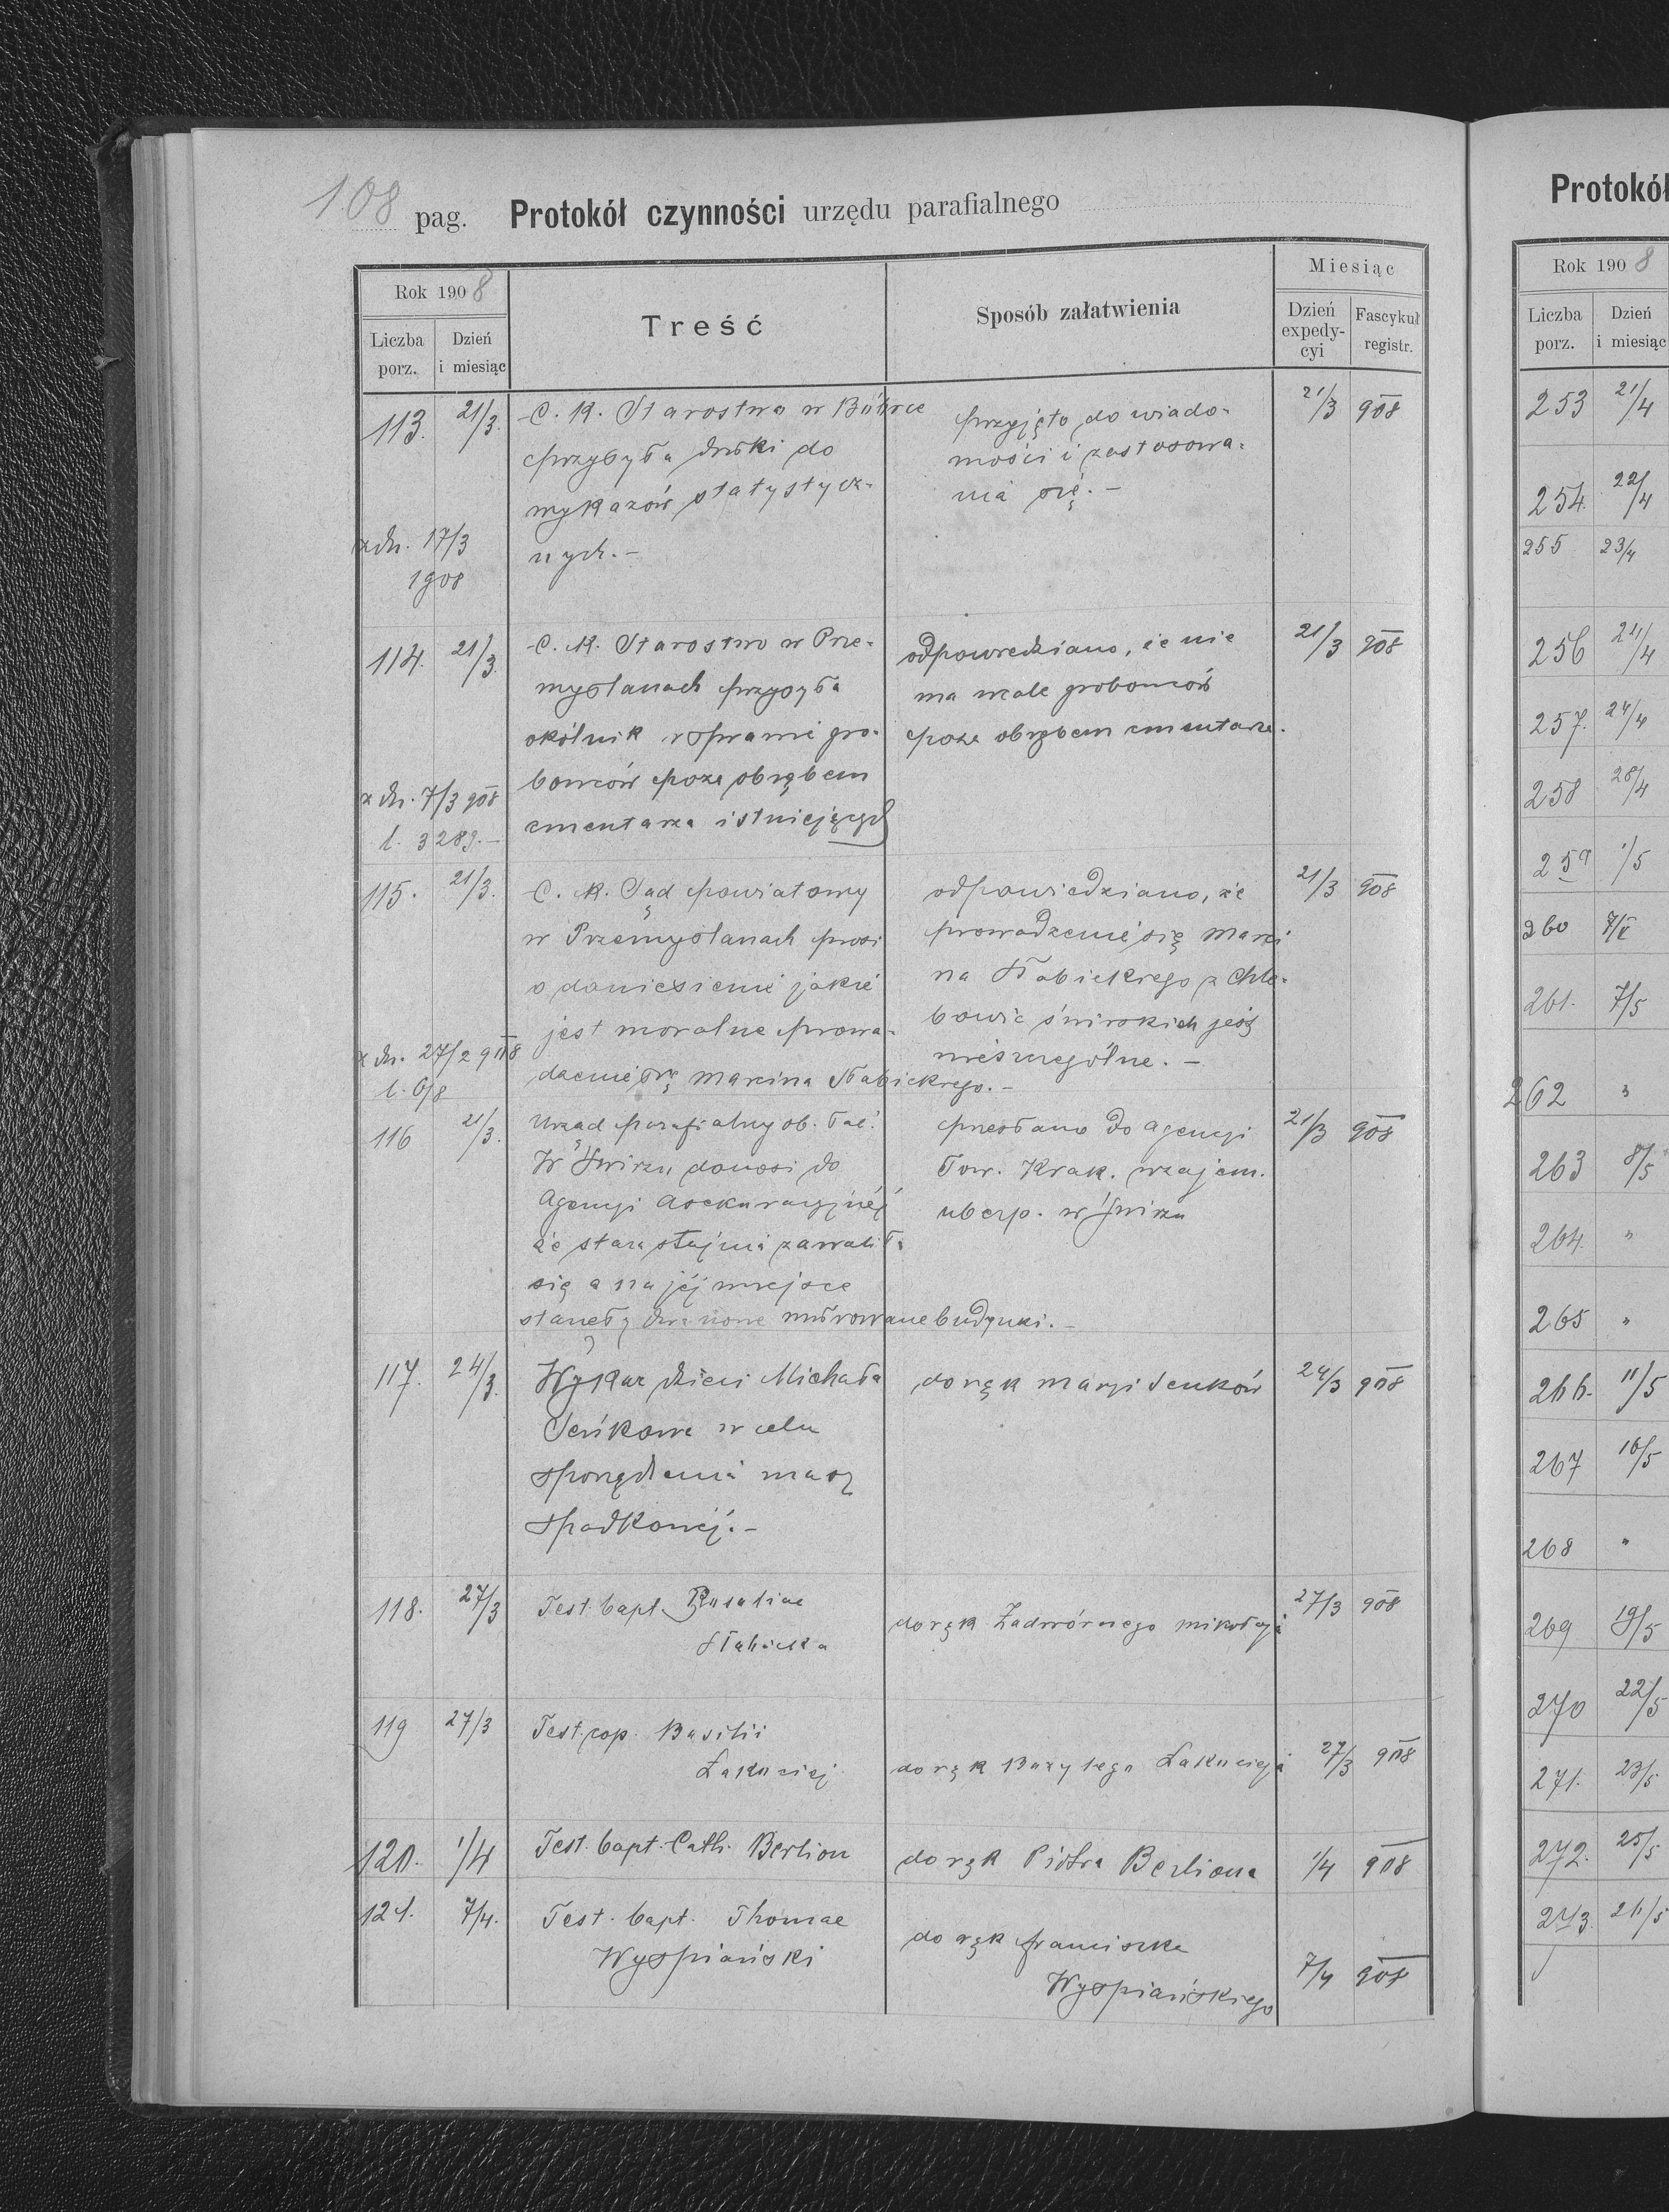 108 pag. Protokół czynności urzędu parafialnego
Rok 1908
Liczba porz.
Dzień i miesiąc
Treść
Sposób załatwienia
Miesiąc
Dzień expedycyi
Fascykuł registr.
113. 21/3.
z dn. 17/3
1908
C. K. Starostwa w Bóbrce
przysyła druki do
wykazów statystycz-
nych.-
przyjęto do wiado-
mości i zastosowa-
nia się.-
21/3 908
114. 21/3.
z dn. 7/3 908
l. 3289.-
C. K. Starostwo w Prze-
myślanach przysyła
okólnik w sprawie gro-
bowców poza obrębem
cmentarza istniejących
odpowiedziano, że nie
ma wcale grobowców
poza obrębem cmentarza.
21/3 908
115. 21/3.
z dn. 27/2 908
l. 6/8
C. K. Sąd powiatowy
w Przemyślanach prosi
o doniesienie jakie
jest moralne prowa-
dzenie się Marcina Słabickiego.-
odpowiedziano, że
prowadzenie się Marci
na Słabickiego z Chle-
bowic świrskich jest
nieszczególne.-
21/3 908
116 21/3.
Urząd parafialny ob. łać.
w Świrzu donosi do
Agencyi Asekuracyjnéj
że stara stajnia zawaliła
się a na jéj miejsce
stanęły dwa nowe murowane budynki.-
przesłano do Agencyi
Tow. Krak. wzajem.
ubezp. w Świrzu
21/3 908
117. 24/3.
Wykaz dzieci Michała
Seńkowa w celu
sporządzenia masy
spadkowéj.-
do rąk Maryi Senków
24/3 908
118. 27/3
Test. bapt. Rosaliae
Słabicka
do rąk Zadwórnego Mikołaja
27/3 908
119 27/3
Test. cop. Basilii
Łakuciej
do rąk Bazylego Łakucieja
27/3 908
120. 1/4
Test. bapt. Cath. Berlion
do rąk Piotra Berliona
1/4 908
121. 7/4.
Test. bapt. Thomae
Wyspiański
do rąk Franciszka
Wyspiańskiego
7/4 908
Protokół
Rok 1908
Liczba porz.
Dzień i miesiąc
253 21/4
254. 22/4
255 23/4
256 24/4
257. 24/4
258 28/4
259 1/5
260 7/V
261. 7/5
262 "
263 8/5
264. "
265 "
266. 11/5
267 16/5
268 "
269 19/5
270 22/5
271. 23/5
272. 25/5
273. 26/5